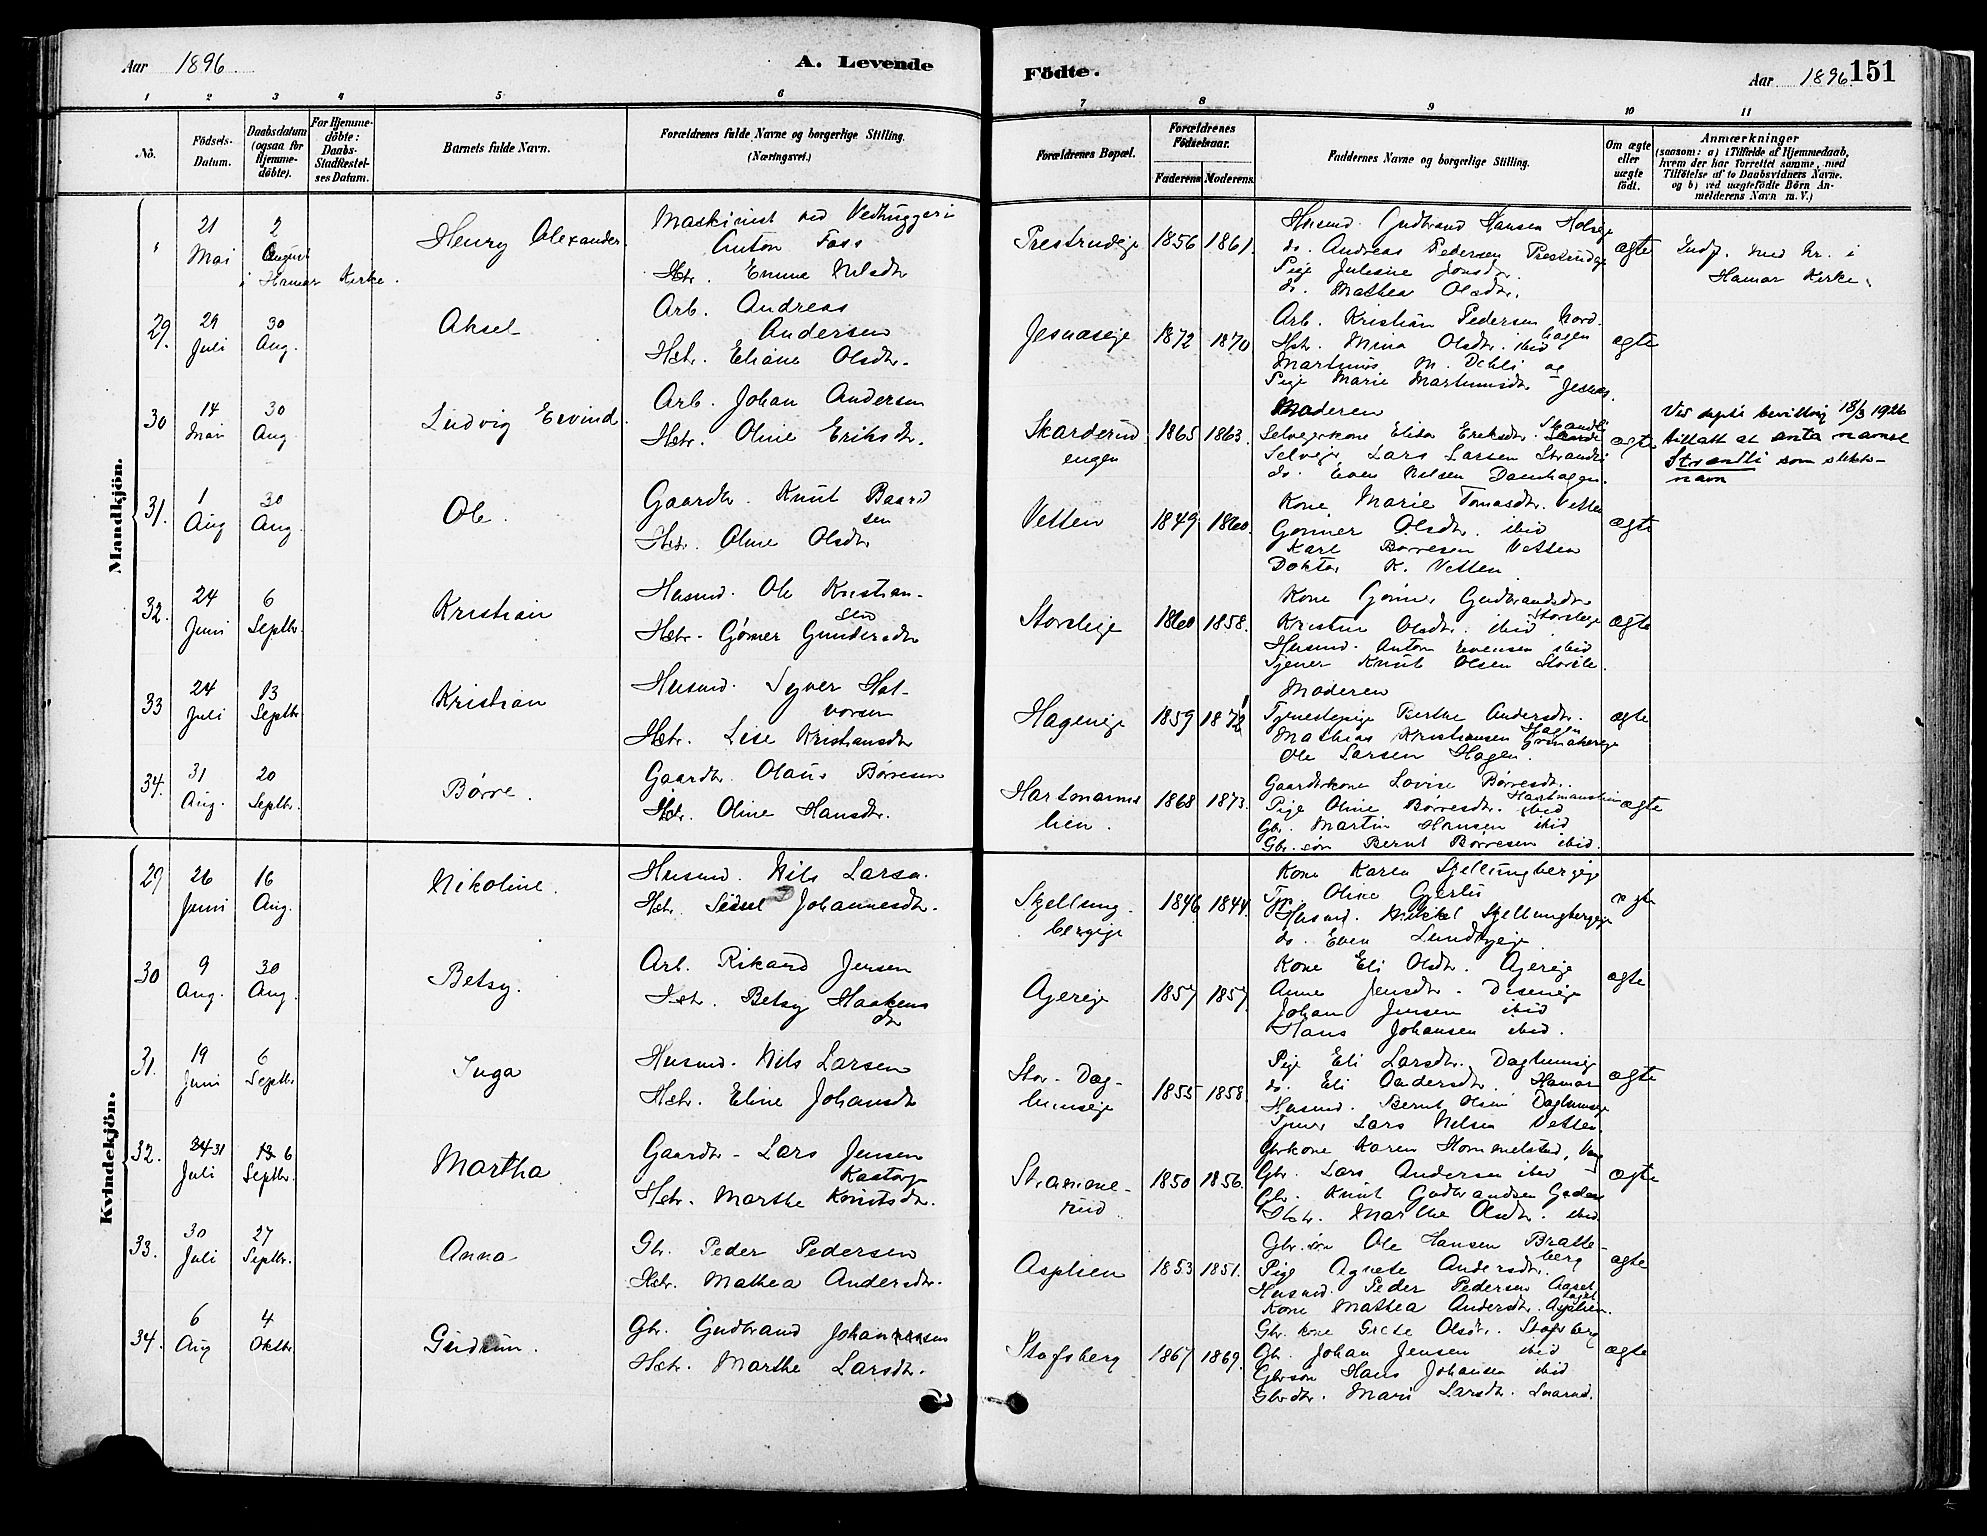 Aar 1896
A. Levende
Födte.
Aar 1896
151
1 2 3 4 5 6 7 8 9 10 11
No.
Födsels-
Datum.
Daabsdatum
(ogsaa for
Hjemme-
döbte).
For Hjemme-
döbte:
Daabs-
Stadfæstel-
ses Datum.
Barnets fulde Navn.
Forældrenes fulde Navne og borgerlige Stilling.
(Næringsvei.)
Forældrenes Bopæl.
Forældrenes
Födselsaar.
Faderens Moderens.
Faddernes Navne og borgerlige Stilling.
Om ægte
eller
uægte
födt.
Anmærkninger
(saasom: a) i Tilfælde af Hjemmedaab,
hvem der har forrettet samme, med
Tilföielse af to Daabsvidners Navne.
og b) ved uægtefödte Börn An-
melderens Navn m. V.)
Mandkjön.
21 Mai
2 August
i Hamar Kirke.
Henry Alexander.
Maskinist ved Vedhuggeri
Anton Foss
Hstr. Emma Nilsdtr
Prestrudeje 1856 1861.
Husmd. Gudbrand Hansen
do. Andreas Pedersen Prestrudeje
Pige Juliane Jonsdtr.
do. Mathea Olsdtr.
ægte
Indf. med Nr. i
Hamar Kirke.
29. 29 Juli 30 Aug.
Aksel
Arb. Andreas
Andersen
Hstr. Eliane Olsdtr.
Jesnaseje 1872 1870
Arb. Kristian Pedersen Nord-
hagen
Hstr. Mina Olsdtr. ibid
Martinus M. Dehli og
Pige Marie Martinusdtr Jesnes.
ægte
30 14 Mai 30 Aug.
Ludvig Eivind.
Arb. Johan Andersen
Hstr. Oline Eriksdtr.
Skarderud
engen
1865 1863.
Moderen
Selveierkone Elise Eriksdtr. Strandli
Selveier Lars Larsen Strandli
do. Even Nilsen Damhagen.
ægte
Ved depts bevilling 18/3 1926
tillatt at anta navnet
Strandli som slekts-
navn
31. 1 Aug 30 Aug.
Ole.
Gaardbr. Knut Baard
sen
Hstr. Oline Olsdtr
Vetten 1849 1860.
Kone Marie Tomasdtr. Vetten
Gønner Olsdtr. ibid
Karl Børresen Vetten
Doktor K. Vetten
ægte
32. 24 Juni 6 Septbr.
Kristian
Husmd. Ole Kristian-
sen
Hstr. Gønner Gundersdtr
Storsleije 1860 1858.
Kone Gønner Gudbrandsdtr
Kristin Olsdtr. ibid
Husmd. Anton Evensen ibid
Tjener Knut Olsen Storsle.
ægte
33 24 Juli 13 Septbr.
Kristian
Husmd. Syver Hal-
vorsen
Hstr. Lise Kristiansdtr
Hageneje 1859
Moderen
Tjenestepige Berthe Andersdtr. Hagen
Mathias Kristiansen Grønakereje
Ole Larsen Hagen.
ægte
34. 31 Aug. 20 Septbr.
Børre.
Gaardbr. Olaus Børresen
Hstr. Oline Hansdtr.
Hartmanns
lien.
1868 1873.
Gaardbrkone Lovise Børresdtr. Hartmannslien
Pige Oline Børresdtr. ibid
Gbr. Martin Hansen ibid
Gbr. søn Bernt Børresen ibid.
ægte
Kvindekjön.
29 26 Juni 16 Aug.
Nikoline.
Husmd. Nils Larsen.
Hstr. Sidsel Johannesdtr.
Skjellung-
bergeje
1846 1844.
Kone Karen Skjellungbergeje
Tp. Oline Gjerlu
Husmd. Mikkel Skjellungbergeje
do. Even Lundbyeje
ægte
30 9 Aug. 30 Aug.
Betsy.
Arb. Rikard Jensen
Hstr. Betsy Haakens
dtr
Ajereje 1857 1857.
Kone Eli Olsdtr. Ajereje
Anne Jensdtr. Diseneje
Johan Jensen ibid
Hans Johansen ibid.
ægte
31. 19 Juni 6 Septbr
Inga
Husmd. Nils Larsen
Hstr. Eline Johansdtr
Stor-Dag-
lunseje
1855 1858
Pige Eli Larsdtr. Daglunseje
do. Eli Andersdtr. Hamar
Husmd. Bernt Olsen Daglunseje
Tjener Lars Nilsen Vetten.
ægte
32. 24 31 Juli 13 6 Septbr.
Martha
Gaardbr. Lars Jensen
Kastorp
Hstr. Marthe Knutsdtr.
Stramme-
rud
1850 1856.
Gbrkone Karen Hommelstad, Vang
Gbr. Lars Andersen ibid
Gbr. Knut Gudbrandsen
Hstr. Marthe Olsdtr. ibid
ægte
33. 30 Juli 27 Septbr.
Anna
Gbr. Peder Pedersen
Hstr. Mathea Andersdtr.
Asplien 1853 1851.
Gbr. søn Ole Hansen Bratte-
berg
Pige Agnete Andersdtr.
Husmd. Peder Pedersen Aaset
Kone Mathea Andersdtr. Asplien.
ægte
34. 6 Aug 4 Oktbr
Gudrun.
Gbr. Gudbrand Johannessen
Hstr. Marthe Larsdtr.
Stafsberg 1867 1869.
Gbr. kone Grete Olsdtr. Stafsberg
Gbr. Johan Jensen ibid
Gbrsøn Hans Johansen ibid
Gbrdtr. Mari Larsdtr.
ægte